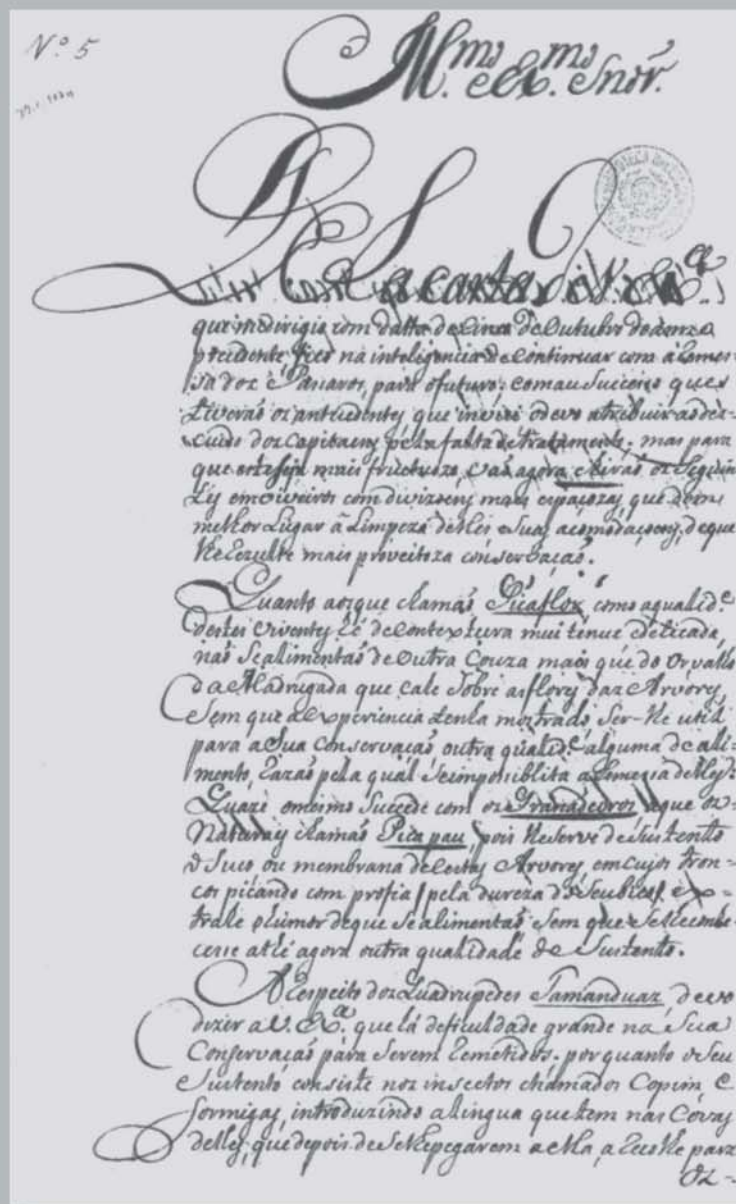 N.º 5
Ill.mo e Ex.mo Snõr.
carta de V. Ex.ª
que me dirigio com datta de Sinco de Outubro do anno
precedente, fico na inteligencia de continuar com a Remes-
sa dos Passaros, para o futuro; com o mau Successo que
tiveraõ os antecedentes que invîei o devo atribuir ao des-
cuido dos Capitaens pella falta de tratamento; mas para
que este seja mais fructuozo, vaõ agora os Seguin
tes em viveiros com divizoens mais espaçozas, que dem
melhor Lugar â Limpeza delles e Suas acomodaçoens, de que
lhe Rezulte mais proveitoza conservaçaõ.
Quanto aos que chamaõ Picaflor, como a qualid.e
destes viventes hé de contextura mui tenue e delicada,
naõ Se alimentaõ de outra Couza mais que do Orvalho
da Madrugada que cahe Sobre as flores das Arvores,
Sem que a experiencia tenha mostrado Ser-lhe util
para a Sua Conservaçaõ outra qualid.e alguma de ali-
mento, Razaõ pela qual Se impossiblita a Remessa delles:
Quazi o mesmo Succede com os Granadeiros, a que os
Naturaes chamaõ Pica pau, pois lhe Serve de Sustento
o Suco ou membrana de Certas Arvores, em cujos tron-
cos picando com profia / pela dureza do Seu bico / ex-
trahe o humor de que Se alimentaõ Sem que Se lhe conhe-
cesse athé agora outra qualidade de Sustento.
A Respeito dos Quadrupedes Tamanduaz, devo
dizer a V. Ex.ª que há deficuldade grande na Sua
Conservaçaõ para Serem Remetidos; por quanto o Seu
Sustento consiste nos insectos chamados Copim, e
formigas, introduzindo a lingua que tem nas Covas
delles, que depois de Se lhe pegarem a ella, a Recolhe para
os-